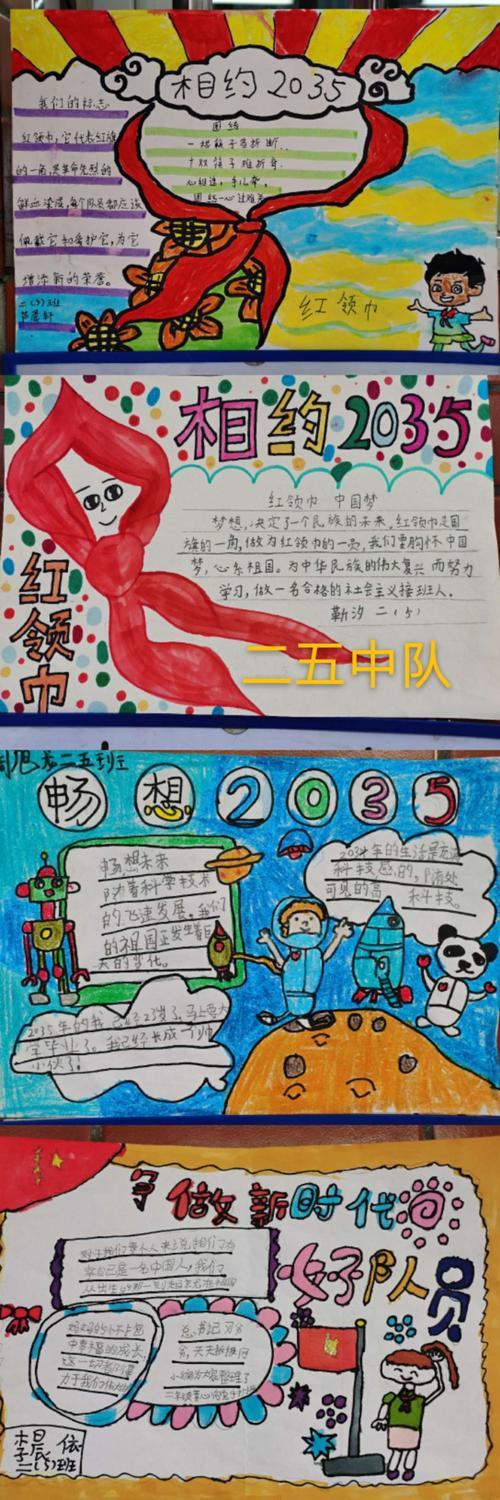 相约2035
我们的标志
红领巾,它代表红旗
的一角,是革命先烈的
鲜血染成,每个队员都应该
佩戴它和爱护它,为它
增添新的荣誉。
二(5)班
团结
一根筷子易折断,
十双筷子难折弯.
心相连,手儿牵,
团结一心过难关
红领巾
相约2035
红领巾 中国梦
梦想,决定了一个民族的未来,红领巾是国
旗的一角,做为红领巾的一员,我们要胸怀中国
梦,心系祖国。为中华民族的伟大复兴而努力
学习,做一名合格的社会主义接班人。
靳汐 二(5)
红领巾
二五中队
二五班
畅想2035
畅想未来
随着科学技术
的飞速发展。我们
的祖国正发生着巨
大的变化。
2035年的生活是充满
科技感的,随处
可见的高科技。
2035年的我已经23岁了,马上要大
学毕业了。我已经长成了帅
小伙了!
争做新时代
好队员
李晨依
二(5)班